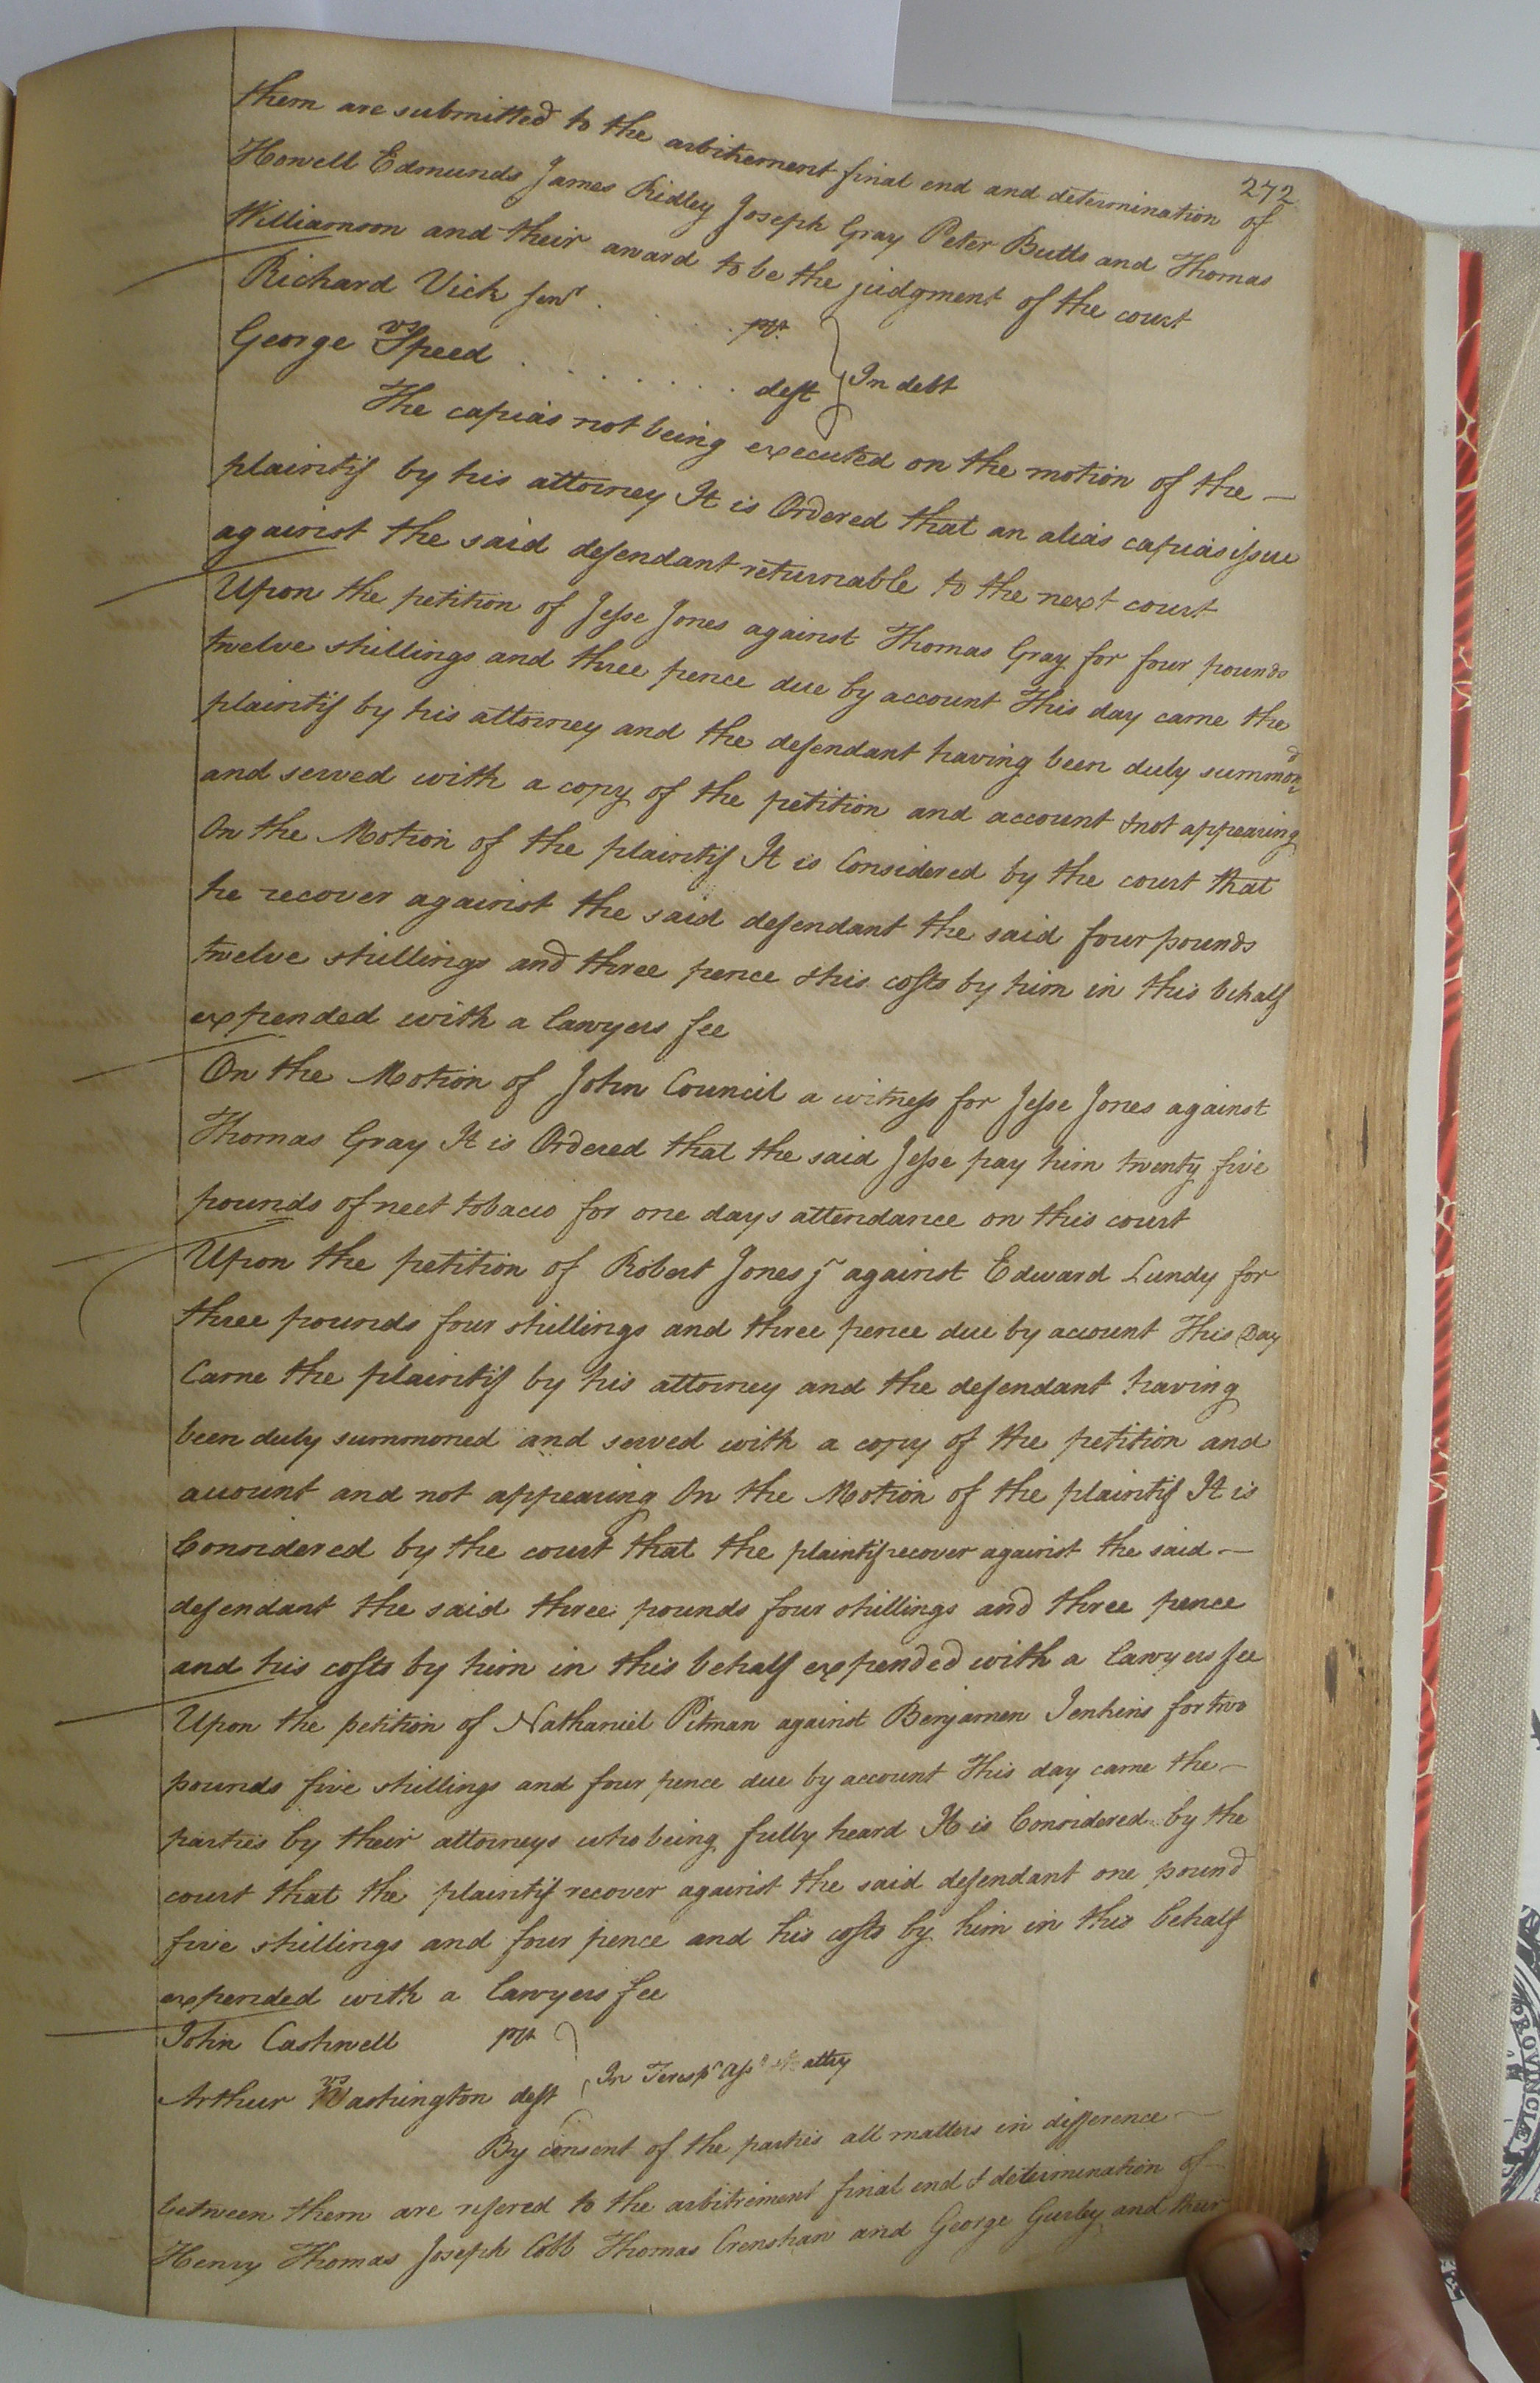 272
them are submitted to the arbitrement final end and determination of
Howell Edmunds James Ridley Joseph Gray Peter Butts and Thomas
Williamson and their award to be the judgment of the court
Richard Vick senr . . . . . plt.
vs
George Speed . . . . . . . . deft } In debt
The capias not being executed on the motion of the —
plaintif by his attorney It is Ordered that an alias capias issue
against the said defendant returnable to the next court
Upon the petition of Jesse Jones against Thomas Gray for four pounds
twelve shillings and three pence due by account This day came the
plaintif by his attorney and the defendant having been duly summond
and served with a copy of the petition and account & not appearing
On the Motion of the plaintif It is Considered by the court that
he recover against the said defendant the said four pounds
twelve shillings and three pence & his costs by him in this behalf
expended with a Lawyers fee
On the Motion of John Council a witness for Jesse Jones against
Thomas Gray It is Ordered that the said Jesse pay him twenty five
pounds of neet tobacco for one days attendance on this court
Upon the petition of Robert Jones jr against Edward Lundy for
three pounds four shillings and three pence due by account This Day
Came the plaintif by his attorney and the defendant having
been duly summoned and served with a copy of the petition and
account and not appearing On the Motion of the plaintif It is
Considered by the court that the plaintif recover against the said —
defendant the said three pounds four shillings and three pence
and his costs by him in this behalf expended with a Lawyers fee
Upon the petition of Nathaniel Pitman against Benjamen Jenkins for two
pounds five shillings and four pence due by account This day came the —
parties by their attorneys who being fully heard It is Considered by the
court that the plaintif recover against the said defendant one pound
five shillings and four pence and his costs by him in this behalf
expended with a Lawyers fee
John Cashwell plt
vs
Arthur Washington deft } In Tresps Asst attey
By consent of the parties all matters in difference —
between them are refered to the arbitrement final end & determination of
Henry Thomas Joseph Cobb Thomas Crenshaw and George Gurley and their